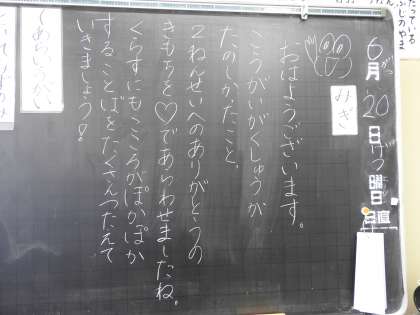 6月20日げつ曜日
日直
みぎ
おはようございます。
こうがいがくしゅうが
たのしかったこと、
2ねんせいへのありがとうの
きもちを♡であらわせましたね。
くらすにもこころがぽかぽか
することばをたくさんつたえて
いきましょう!